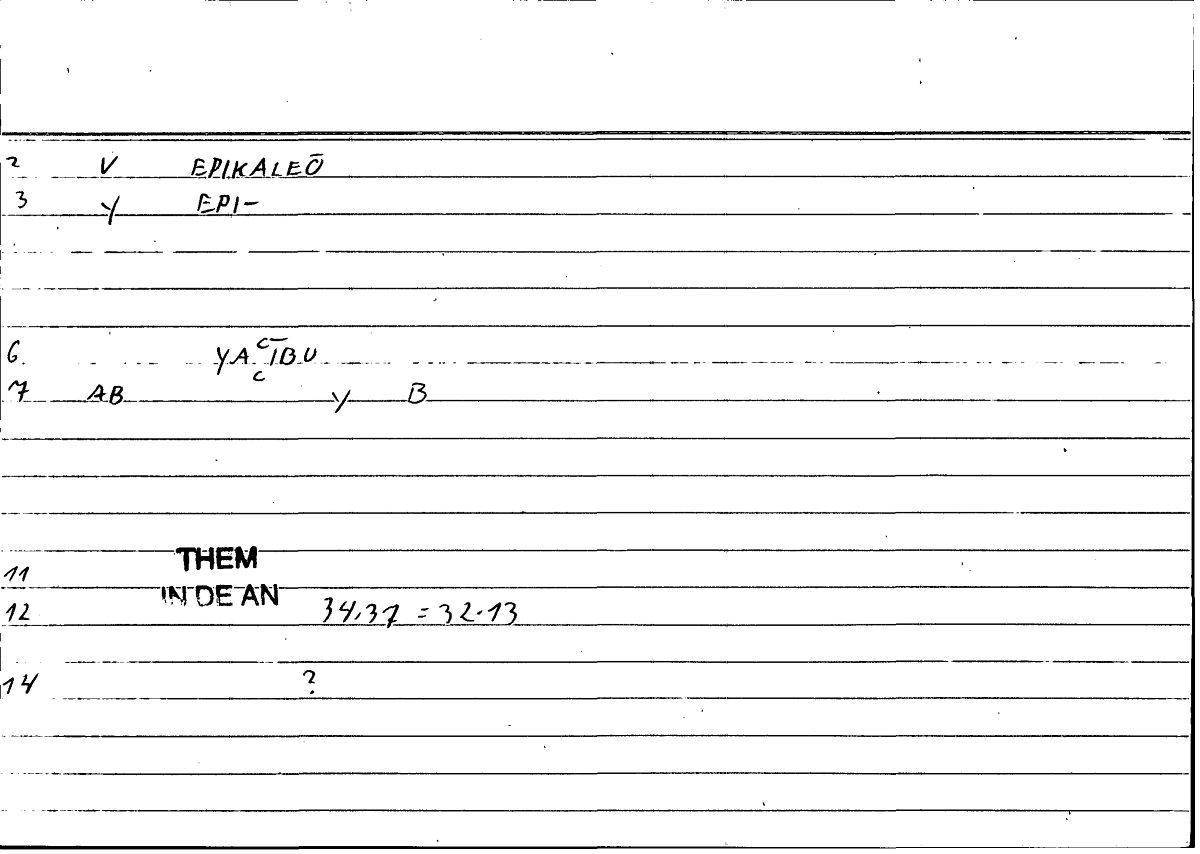 2 V EPIKALEŌ
3 Y EPI-
6. YAʿĪBU
7 AB Y B
11 THEM
IN DE AN
12 34,37 = 32.13
14 ?